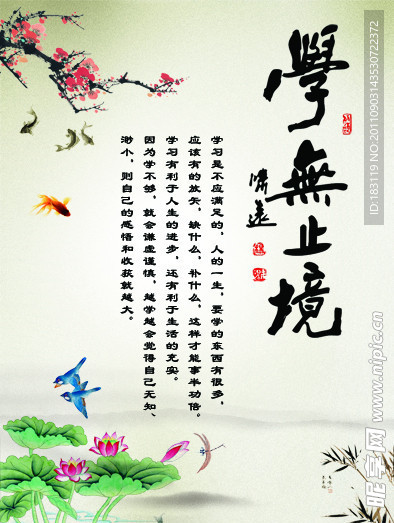 學無止境
学习是不应满足的，人的一生，要学的东西有很多，
应该有的放矢，缺什么，补什么，这样才能事半功倍。
学习有利于人生的进步，还有利于生活的充实。
因为学不够，就会谦虚谨慎，越学越会觉得自己无知、
渺小，则自己的感悟和收获就越大。
ID:183119 NO:20110903143530722372
昵享网 www.nipic.cn